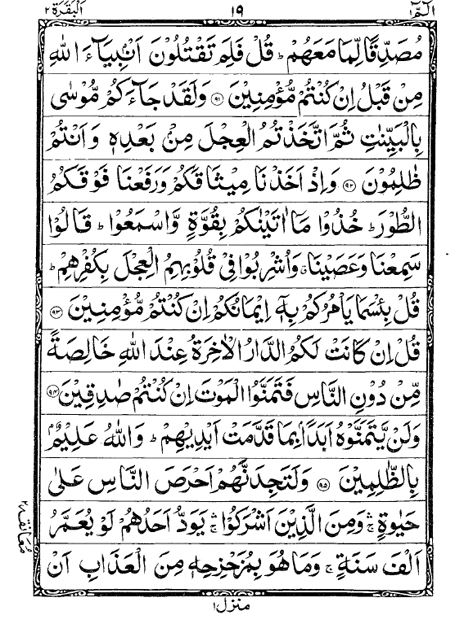 الٓمّٓ ١
١٩
اَلْبَقَرَة ٢
مُصَدِّقًا لِّمَا مَعَهُمْ ؕ قُلْ فَلِمَ تَقْتُلُوْنَ اَنْۢبِيَآءَ اللّٰهِ
مِنْ قَبْلُ اِنْ كُنْتُمْ مُّؤْمِنِيْنَ ﴿٩١﴾ وَلَقَدْ جَآءَكُمْ مُّوْسٰى
بِالْبَيِّنٰتِ ثُمَّ اتَّخَذْتُمُ الْعِجْلَ مِنْۢ بَعْدِهٖ وَاَنْتُمْ
ظٰلِمُوْنَ ﴿٩٢﴾ وَاِذْ اَخَذْنَا مِيْثَاقَكُمْ وَرَفَعْنَا فَوْقَكُمُ
الطُّوْرَ ؕ خُذُوْا مَآ اٰتَيْنٰكُمْ بِقُوَّةٍ وَّاسْمَعُوْا ؕ قَالُوْا
سَمِعْنَا وَعَصَيْنَا ۗ وَاُشْرِبُوْا فِيْ قُلُوْبِهِمُ الْعِجْلَ بِكُفْرِهِمْ ؕ
قُلْ بِئْسَمَا يَاْمُرُكُمْ بِهٖٓ اِيْمَانُكُمْ اِنْ كُنْتُمْ مُّؤْمِنِيْنَ ﴿٩٣﴾
قُلْ اِنْ كَانَتْ لَكُمُ الدَّارُ الْاٰخِرَةُ عِنْدَ اللّٰهِ خَالِصَةً
مِّنْ دُوْنِ النَّاسِ فَتَمَنَّوُا الْمَوْتَ اِنْ كُنْتُمْ صٰدِقِيْنَ ﴿٩٤﴾
وَلَنْ يَّتَمَنَّوْهُ اَبَدًۢا بِمَا قَدَّمَتْ اَيْدِيْهِمْ ؕ وَاللّٰهُ عَلِيْمٌۢ
بِالظّٰلِمِيْنَ ﴿٩٥﴾ وَلَتَجِدَنَّهُمْ اَحْرَصَ النَّاسِ عَلٰى
حَيٰوةٍ ۛۚ وَمِنَ الَّذِيْنَ اَشْرَكُوْا ۛۚ يَوَدُّ اَحَدُهُمْ لَوْ يُعَمَّرُ
اَلْفَ سَنَةٍ ۚ وَمَا هُوَ بِمُزَحْزِحِهٖ مِنَ الْعَذَابِ اَنْ
معانقة ٢
منزل ١